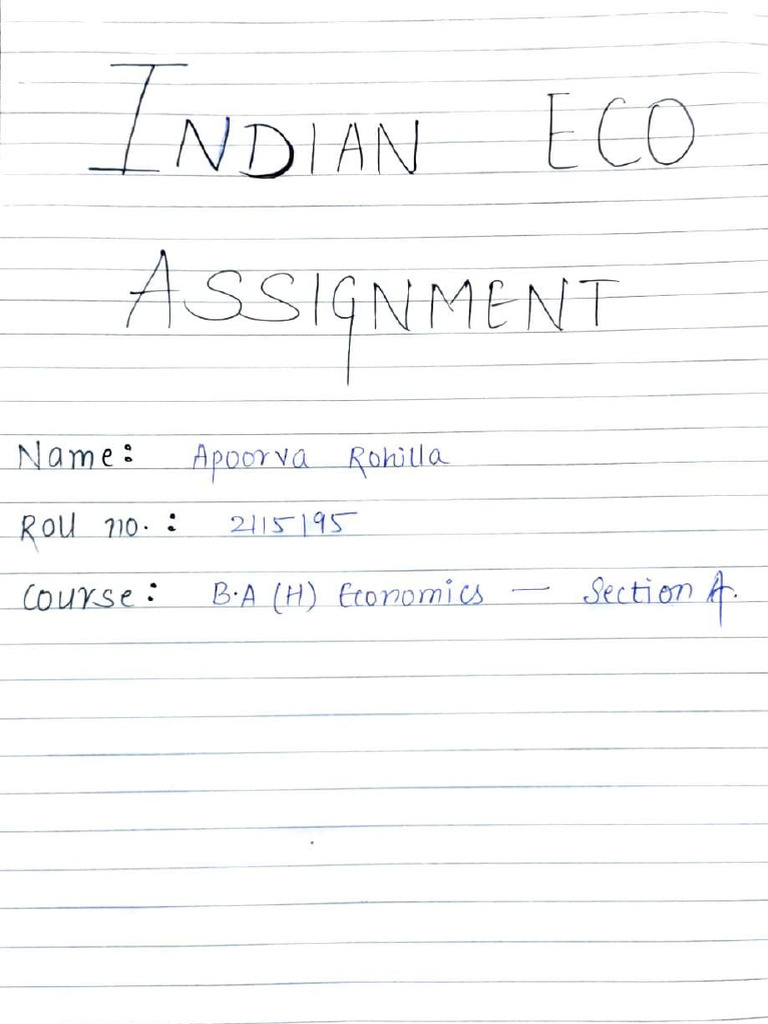 INDIAN ECO
ASSIGNMENT
Name: Apoorva Rohilla
Roll no. : 2115195
Course: B.A (H) Economics — Section A.